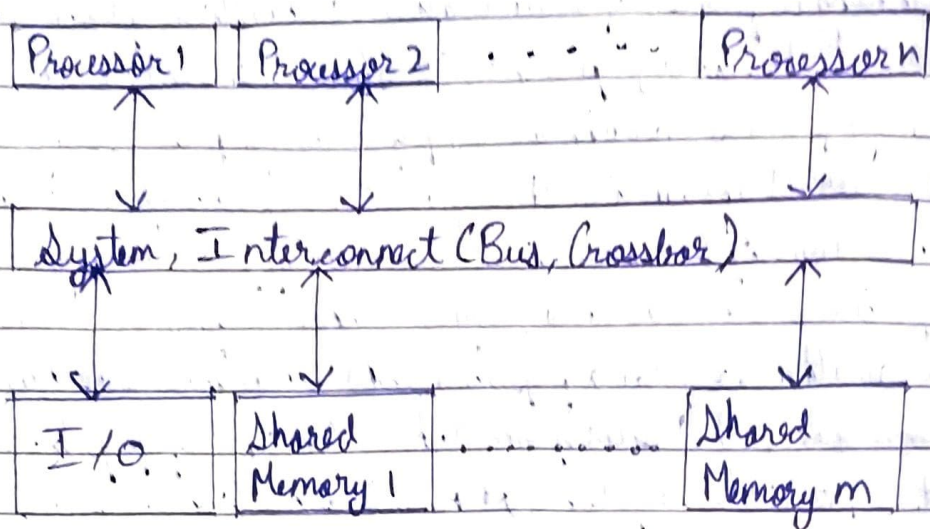 Processor 1 Processor 2 ...... Processor n
System, Interconnect (Bus, Crossbar).
I/O. Shared Memory 1 ......... Shared Memory m